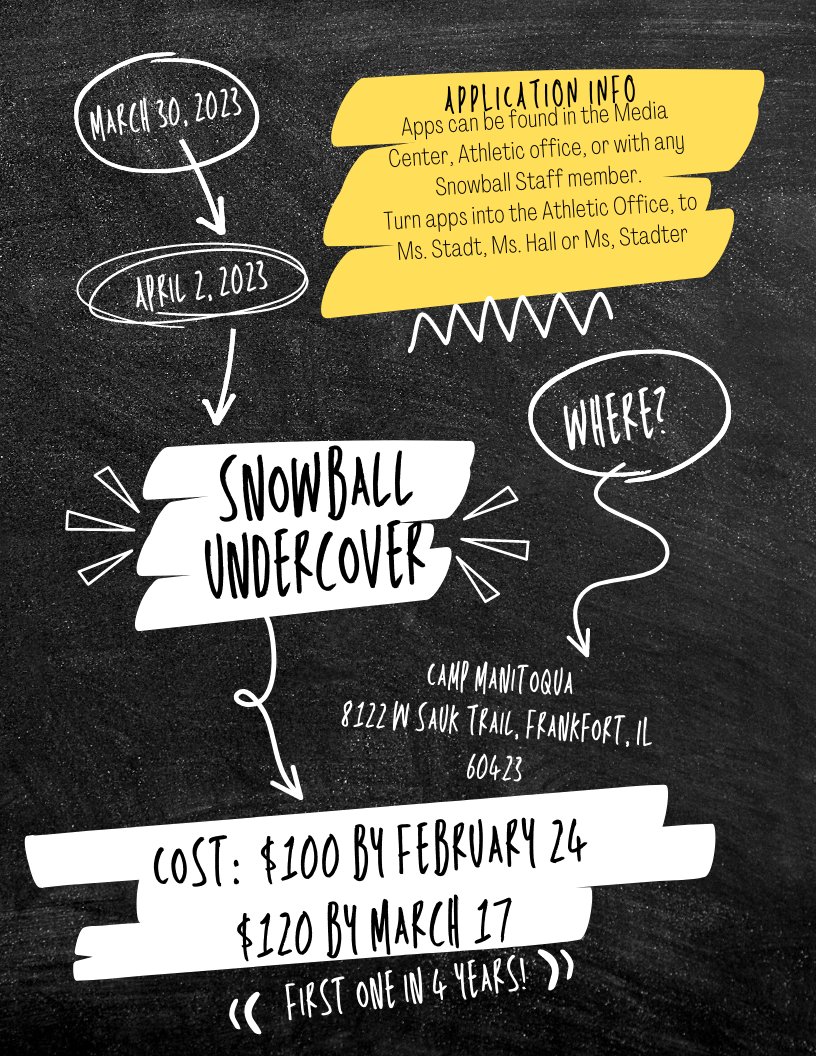 MARCH 30, 2023
APPLICATION INFO
Apps can be found in the Media
Center, Athletic office, or with any
Snowball Staff member.
Turn apps into the Athletic Office, to
Ms. Stadt, Ms. Hall or Ms, Stadter
APRIL 2, 2023
WHERE?
SNOWBALL
UNDERCOVER
CAMP MANITOQUA
8122 W SAUK TRAIL, FRANKFORT, IL
60423
COST: $100 BY FEBRUARY 24
$120 BY MARCH 17
FIRST ONE IN 4 YEARS!